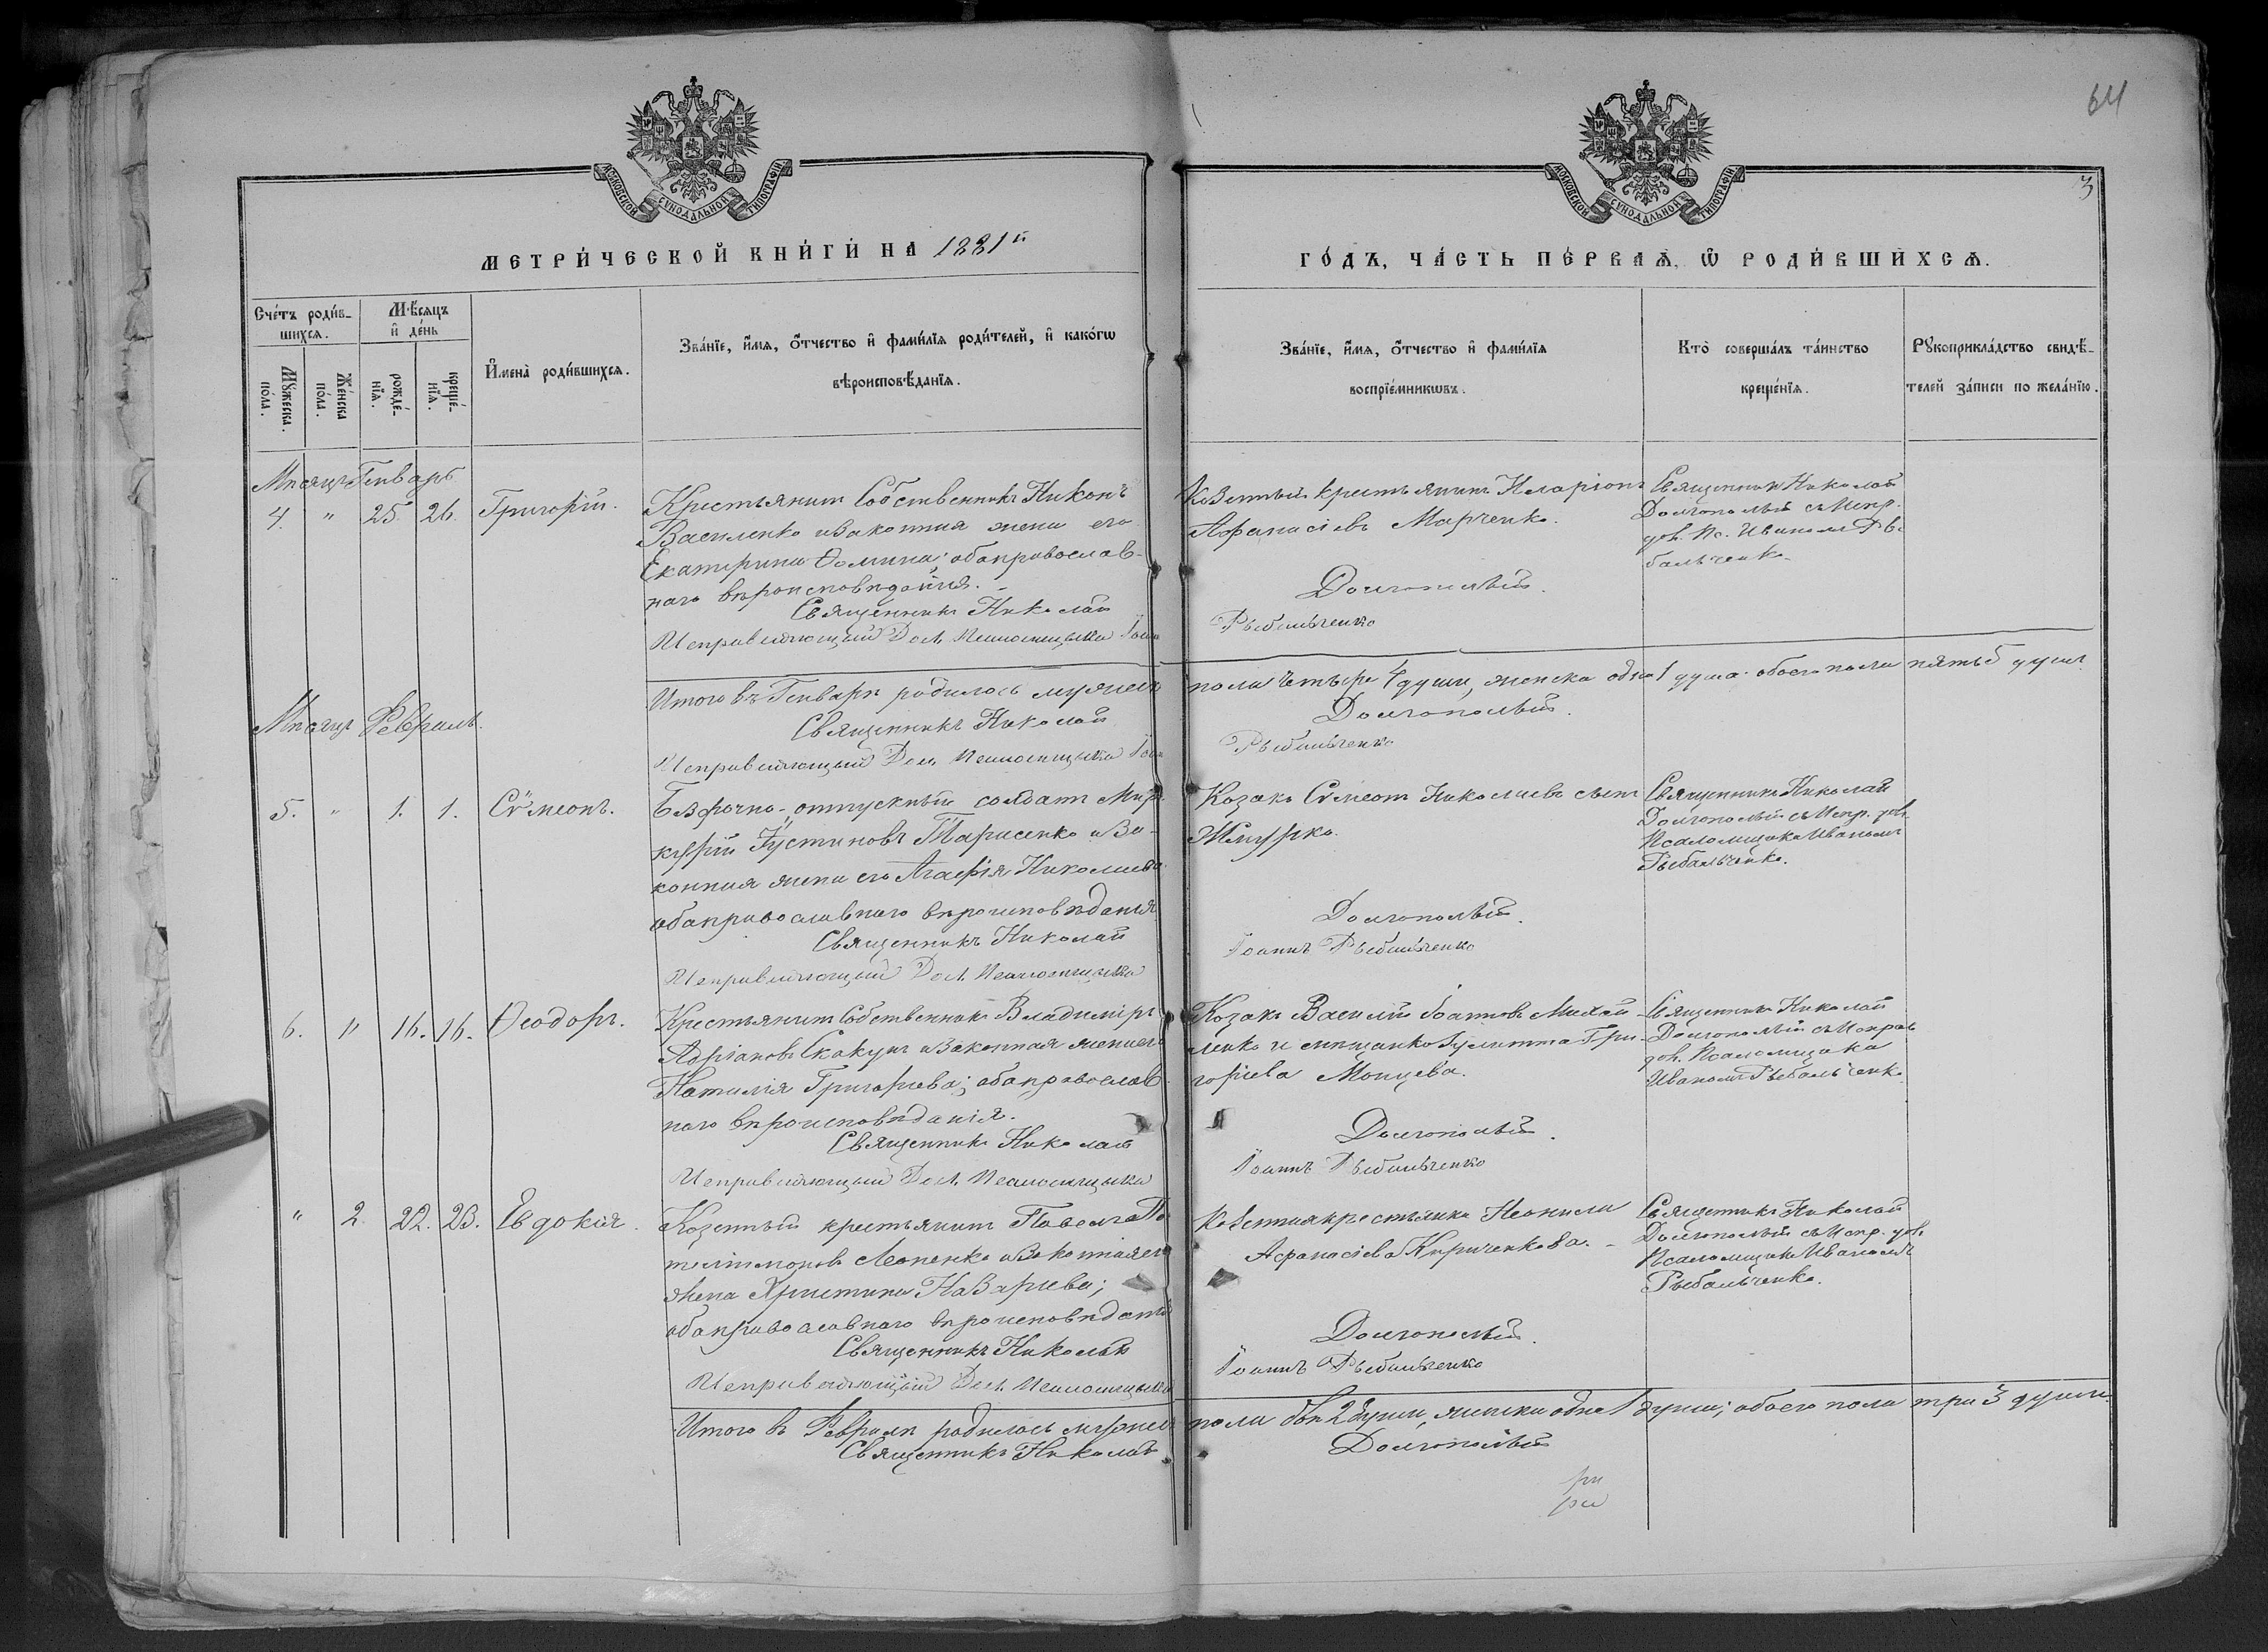 64
МОСКОВСКОЙ СѴНОДАЛЬНОЙ ТИПОГРАФІИ
МОСКОВСКОЙ СѴНОДАЛЬНОЙ ТИПОГРАФІИ
3
МЕТРИ́ЧЕСКОЙ КНИ́ГИ НА 1881й
ГО́ДЪ, ЧА́СТЬ ПЕ́РВАѦ, Ѡ РОДИ́ВШИХСѦ.
Сче́тъ роди́в-
шихсѧ.
Мꙋ́жеска по́ла.
Же́нска по́ла.
Мѣ́сѧцъ
и҆ де́нь
рожде́-
нїѧ.
креще́-
нїѧ.
И҆мена̀ роди́вшихсѧ.
Зва́нїе, и҆́мѧ, ѻ҆́тчество и҆ фами́лїѧ роди́телей, и҆ како́гѡ
вѣроисповѣ́данїѧ.
Зва́нїе, и҆́мѧ, ѻ҆́тчество и҆ фами́лїѧ
воспрїе́мникѡвъ.
Кто̀ соверша́лъ та́инство
креще́нїѧ.
Рꙋкоприкла́дство свидѣ́-
телей за́писи по жела́нїю.
Мѣсяцъ Генварь
4. " 25. 26. Григорій.
Крестьянинъ Собственникъ Никонъ
Василенко и законная жена его
Екатерина Ѳомина; оба православ-
наго вѣроисповѣданія.
Священникъ Николай
Исправляющій Дол. Псаломщика Іоан
Казенный крестьянинъ Иларіонъ
Афанасіевъ Марченко.
Долгополый.
Рыбальченко
Священникъ Николай
Долгополый съ Испр.
дол. Пс. Иваномъ Ры-
бальченко.
Итого въ Генварѣ родилось мужеск
пола четыре 4 души, женска одна 1 душа. обоего пола пять 5 душъ
Священникъ Николай
Долгополый.
Исправляющій Дол. Псаломщика Іоан
Рыбальченко
Мѣсяцъ Февраль.
5. " 1. 1. Сѵмеонъ.
Безсрочно-отпускный солдатъ Мер-
курій Іустиновъ Тарасенко и за-
конная жена его Агафія Николаева
оба православнаго вѣроисповѣданія
Священникъ Николай
Исправляющій Дол. Псаломщика
Козакъ Сѵмеонъ Николаевъ сынъ
Жмурко.
Долгополый.
Іоаннъ Рыбальченко
Священникъ Николай
Долгополый съ Испр. дол.
Псаломщика Иваномъ
Рыбальченко.
6. " 16. 16. Ѳеодоръ.
Крестьянинъ Собственникъ Владиміръ
Адріановъ Скакунъ и законная жена его
Наталія Григорьева; оба православ-
наго вѣроисповѣданія.
Священникъ Николай
Исправляющій Дол. Псаломщика
Козакъ Василій Іоанновъ Михай-
ленко и мѣщанка Іулитта Гри-
горіева Монцева.
Долгополый.
Іоаннъ Рыбальченко
Священникъ Николай
Долгополый съ Исправ
дол. Псаломщика
Иваномъ Рыбальченко
" 2. 22. 23. Евдокія.
Козенный крестьянинъ Павелъ Па
телимоновъ Леоненко и законная его
жена Христина Назарьева;
оба православнаго вѣроисповѣданія
Священникъ Николай
Исправляющій Дол. Псаломщика
Козенная крестьянка Неонила
Афанасіева Кириченкова.
Долгополый.
Іоаннъ Рыбальченко
Священникъ Николай
Долгополый съ Испр. дол.
Псаломщика Иваномъ
Рыбальченко.
Итого въ Февралѣ родилось мужеск
пола двѣ 2 души, женска одна 1 душа; обоего пола три 3 души.
Священникъ Николай
Долгополый